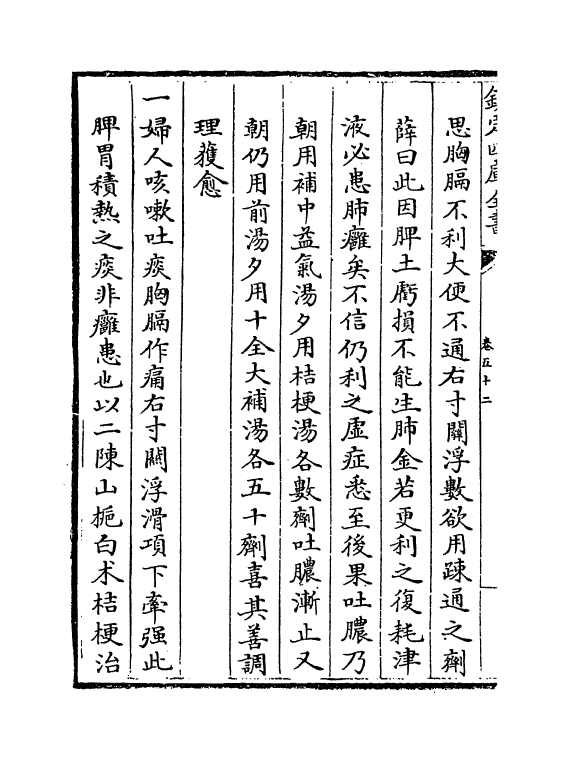 欽定四庫全書
卷五十二
思胸膈不利大便不通右寸關浮數欲用踈通之劑
薛曰此因脾土虧損不能生肺金若更利之復耗津
液必患肺癰矣不信仍利之虛症悉至後果吐膿乃
朝用補中益氣湯夕用桔梗湯各數劑吐膿漸止又
朝仍用前湯夕用十全大補湯各五十劑喜其善調
理獲愈
一婦人咳嗽吐痰胸膈作痛右寸關浮滑項下牽强此
脾胃積熱之痰非癰患也以二陳山梔白术桔梗治